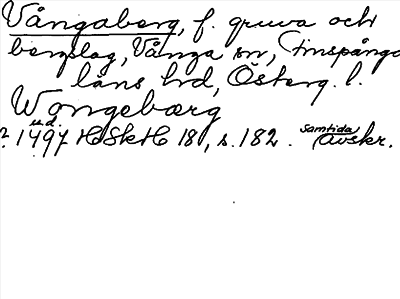 Vångaberg, f. gruva och
bergslag, Vånga sn, Finspånga
läns hd, Österg. l.
Wongebærg
u.d.
? 1497 HSH 18, s. 182. samtida avskr.